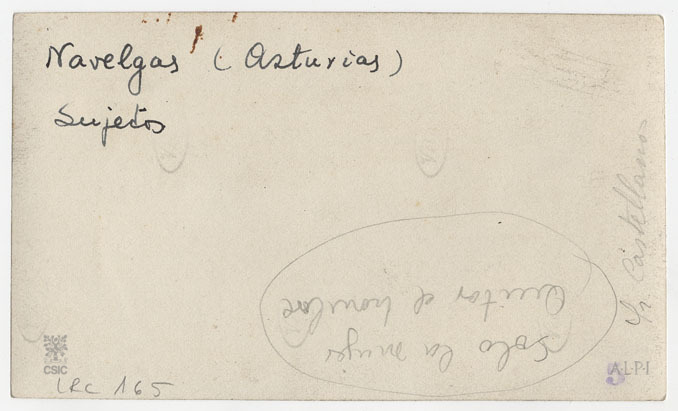 Navelgas (Asturias)
Sujetos
Sr Castellanos
Solo la mujer
Quitar el hombre
CSIC
LRC 165
5
A·L·P·I